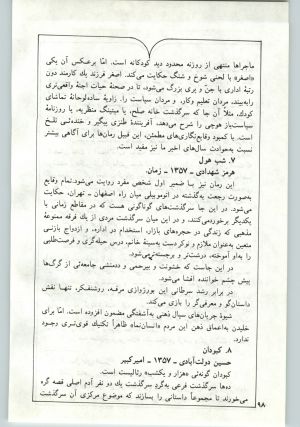 ماجراها منتهی از روزنه محدود دید کودکانه است. امّا برعکس آن یکی
«اصغر» با لحنی شوخ و شنگ حکایت می‌کند. اصغر فرزند یک کارمند دون
رتبهٔ اداری با جن و پری بزرگ می‌شود، تا در صحنهٔ حیات اجنهٔ واقعی‌تری
را ببیند، مردان تعلیم وکار، و مردان سیاست را. زاویهٔ ساده‌لوحانهٔ تماشای
کودک، مثلا آن جا که سرگذشت خانه صلح، یا میتینگ منظریه، یا روزنامهٔ
سیاست‌باز هوچی را شرح می‌دهد، آفرینندهٔ طنزی پیگیر و خنده‌ئی تلخ
است. با کمبود وقایع‌نگاری‌های مطمئن، این قبیل رمان‌ها برای آگاهی بیشتر
نسبت به‌حوادث سال‌های اخیر ما نیز مفید است.
۷. شب هول
هرمز شهدادی ـ ۱۳۵۷ ـ زمان.
این رمان نیز با ضمیر اول شخص مفرد روایت می‌شود. تمام وقایع
به‌صورت رجعت به‌گذشته در اتومبیلی میان راه اصفهان ـ تهران، حکایت
می‌شود. در این جا سرگذشت‌های گوناگونی هست که در مقاطع زمانی با
یکدیگر برخورد می‌کنند، و در این میان سرگذشت مردی از یک فرقه ممنوعهٔ
مذهبی که زندگی در حجره‌های بازار، استخدام در اداره، و ازدواج بازنـی
متعین به‌عنوان ملازم و نوکر دست به‌سینهٔ خانم، درس حیله‌گری و فرصت‌طلبی
را به‌او آموخته، درشت‌تر و برجسته‌تر می‌شود.
در این جاست که خشونت و بیرحمی و ددمنشی جامعه‌ئی از گرگ‌ها
پیش چشم خواننده افشا می‌شود.
در برابر رشد سرطانی این بورژوازی مرفـه، روشنفکر، تنهـا نقش
داستان‌گو و معرفی‌گر را بازی می‌کند.
شیوهٔ جریان‌های سیال ذهنی به‌آشفتگی مضمون افزوده است. امّا برای
خلیدن به‌اعماق ذهن این مردم «انسان‌نما» ظاهراً تکنیک قوی‌تری وجـود
ندارد.
۸. کبودان
حسین دولت‌آبادی ـ ۱۳۵۷ ـ امیرکبیر
کبودان گونه‌ئی «هزار و یکشب» رئالیست است.
ده‌ها سرگذشت فرعی به‌گرد سرگذشت یك دو نفر آدم اصلی قصه گره
می‌خورند تا مجموعاً داستانی را بسازند که موضوع مرکزی آن سرگذشت
۹۸